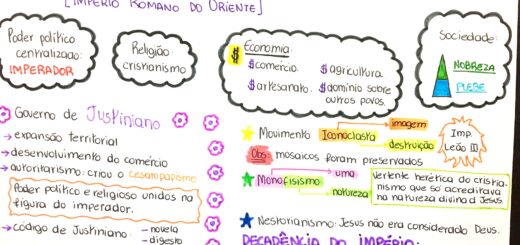 [IMPÉRIO ROMANO DO ORIENTE]
Poder político
centralizado:
IMPERADOR
Religião:
cristianismo
$ Economia:
$ comércio
$ agricultura
$ artesanato
$ domínio sobre
outros povos.
Sociedade:
NOBREZA
PLEBE
Governo de Justiniano
→ expansão territorial
→ desenvolvimento do comércio
→ autoritarismo: criou o cesaropapismo
Poder político e religioso unidos na
figura do imperador.
→ código de Justiniano:
- novela
- digesto
imagem
★ Movimento Iconoclasta
destruição
Imp.
Leão III
Obs: mosaicos foram preservados
uma
★ Monofisismo
natureza
Vertente herética do cristia-
nismo que só acreditava
na natureza divina d Jesus.
★ Nestorianismo: Jesus não era considerado Deus.
DECADÊNCIA DO IMPÉRIO: